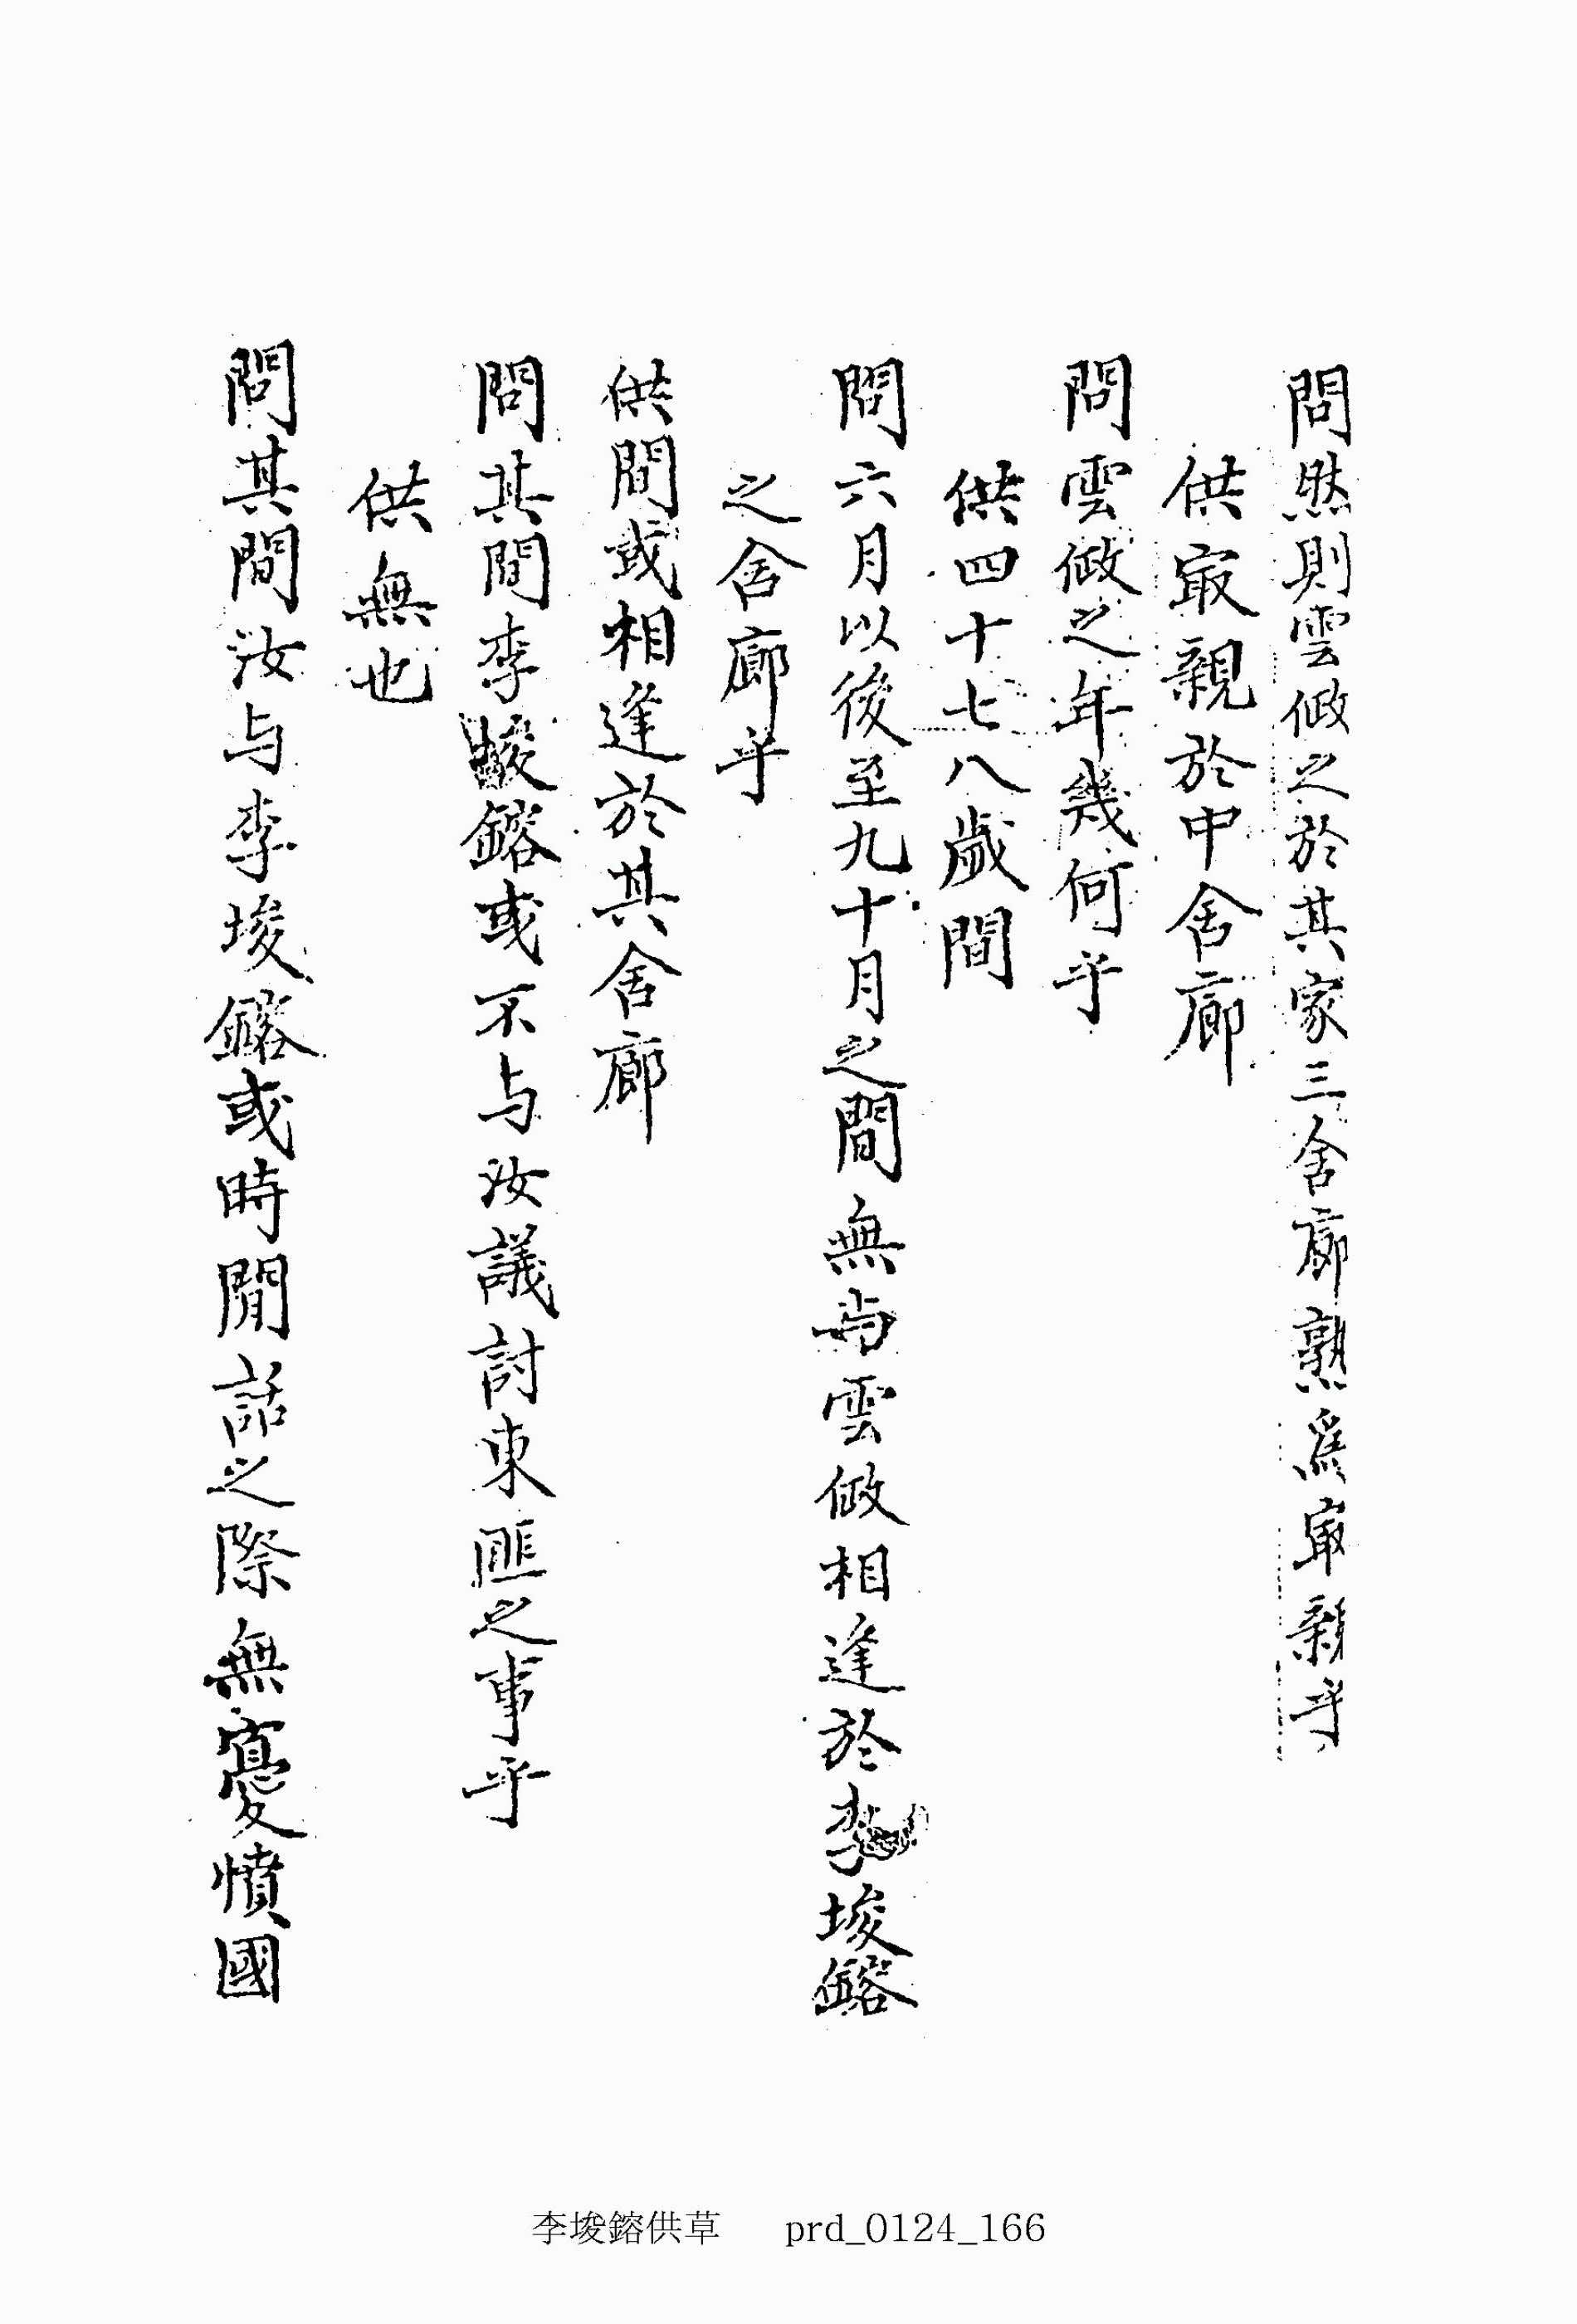 問然則雲倣之於其家三舍廊熟爲㝡親乎
供㝡親於中舍廊
問雲倣之年幾何乎
供四十七八歲間
問六月以後至九十月之間無与雲倣相逢於李埈鎔
之舍廊乎
供間或相逢於其舍廊
問其間李埈鎔或不与汝議討東匪之事乎
供無也
問其間汝与李埈鎔或時閒話之際無憂憤國
李埈鎔供草 prd_0124_166